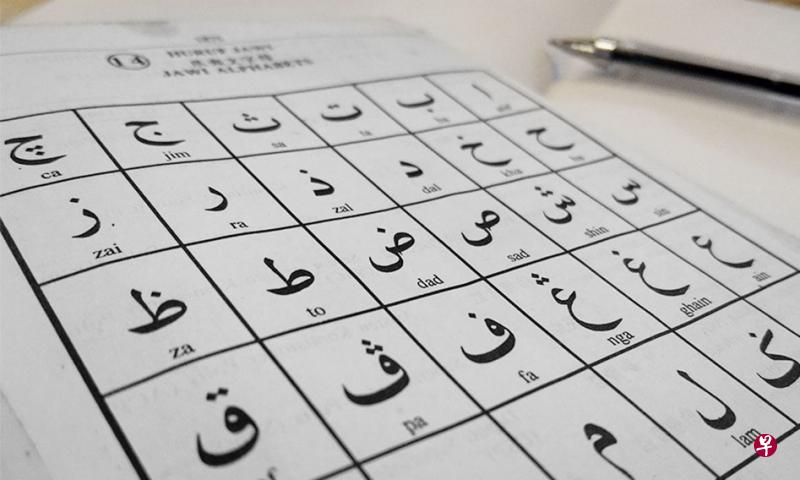 14
HURUF JAWI
爪夷文字母
JAWI ALPHABETS
ا ب ت ث ج چ
ca jim sa ta ba alif
ح خ د ذ ر ز
zai ra zal dal kha ha
س ش ص ض ط ظ
za to dad sad shin sin
ع غ ڠ ف ڤ ق
pa fa nga ghain ain
ک ل م
lam
早